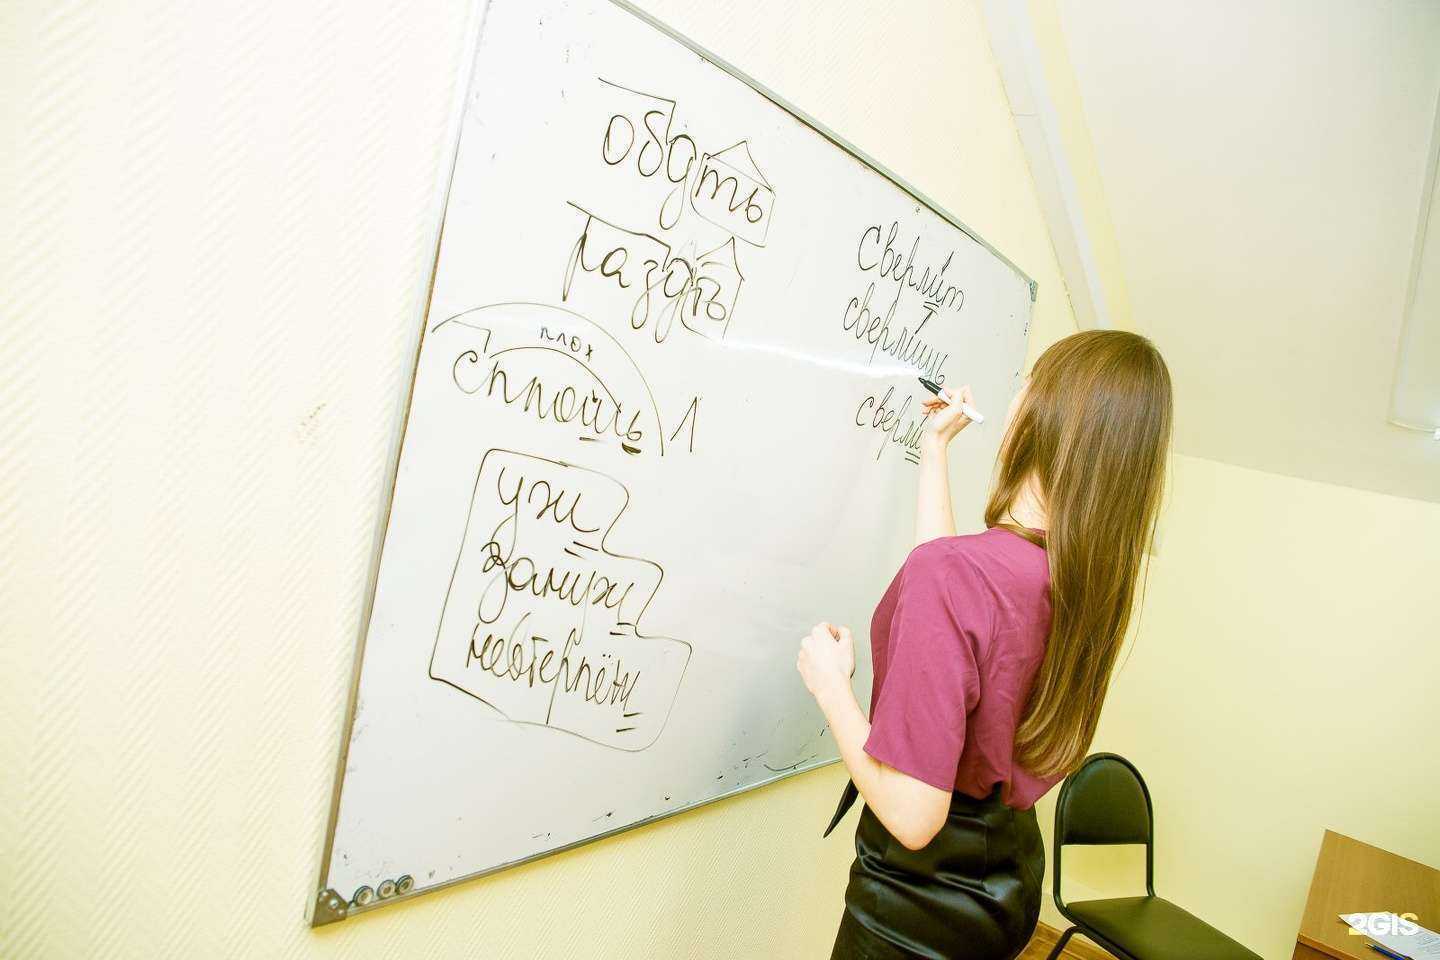 обуть
разуть
плох
сплошь
уж
замуж
невтерпёж
сверлит
сверлишь
сверли
2GIS